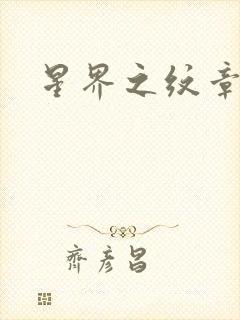 星界之纹章
齐彦昌